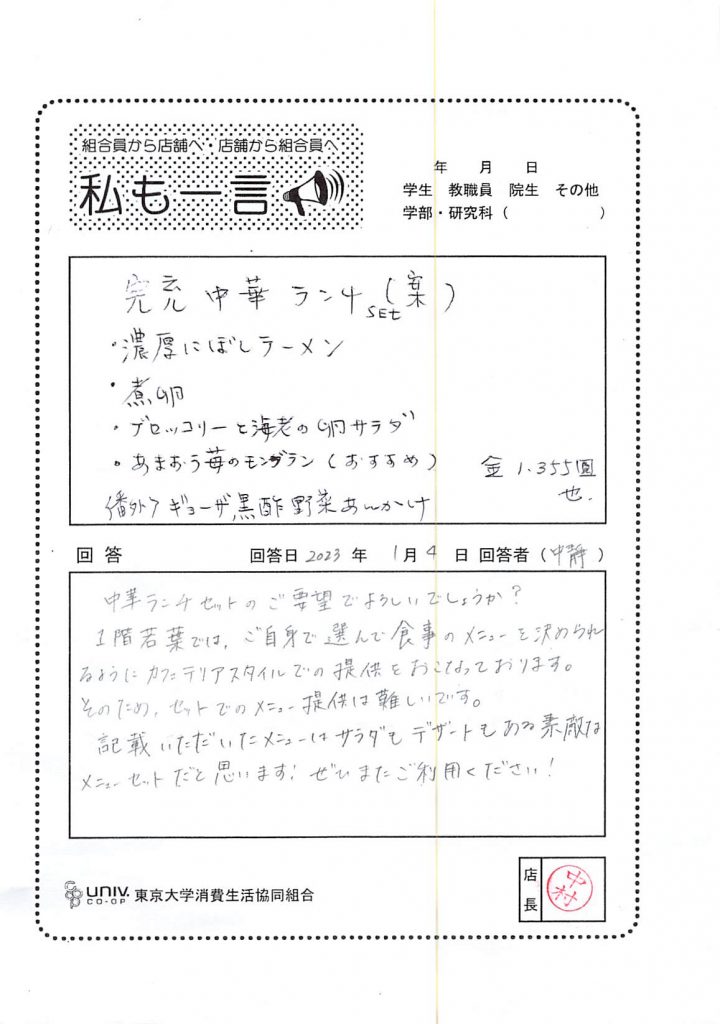 組合員から店舗へ・店舗から組合員へ
私も一言
年 月 日
学生 教職員 院生 その他
学部・研究科( )
完元 中華 ランチSET(案)
・濃厚にぼしラーメン
・煮卵
・ブロッコリーと海老の卵サラダ
・あまおう苺のモンブラン(おすすめ) 金 1.355圓
也.
番外 ギョーザ黒酢野菜あんかけ
回答 回答日 2023 年 1月 4 日 回答者(中静)
中華ランチセットのご要望でよろしいでしょうか?
1階若葉では、ご自身で選んで食事のメニューを決められ
るようにカフェテリアスタイルでの提供をおこなっております。
そのため、セットでのメニュー提供は難しいです。
記載いただいたメニューはサラダもデザートもある素敵な
メニューセットだと思います! ぜひまたご利用ください!
UNIV. CO-OP 東京大学消費生活協同組合
店長 中村